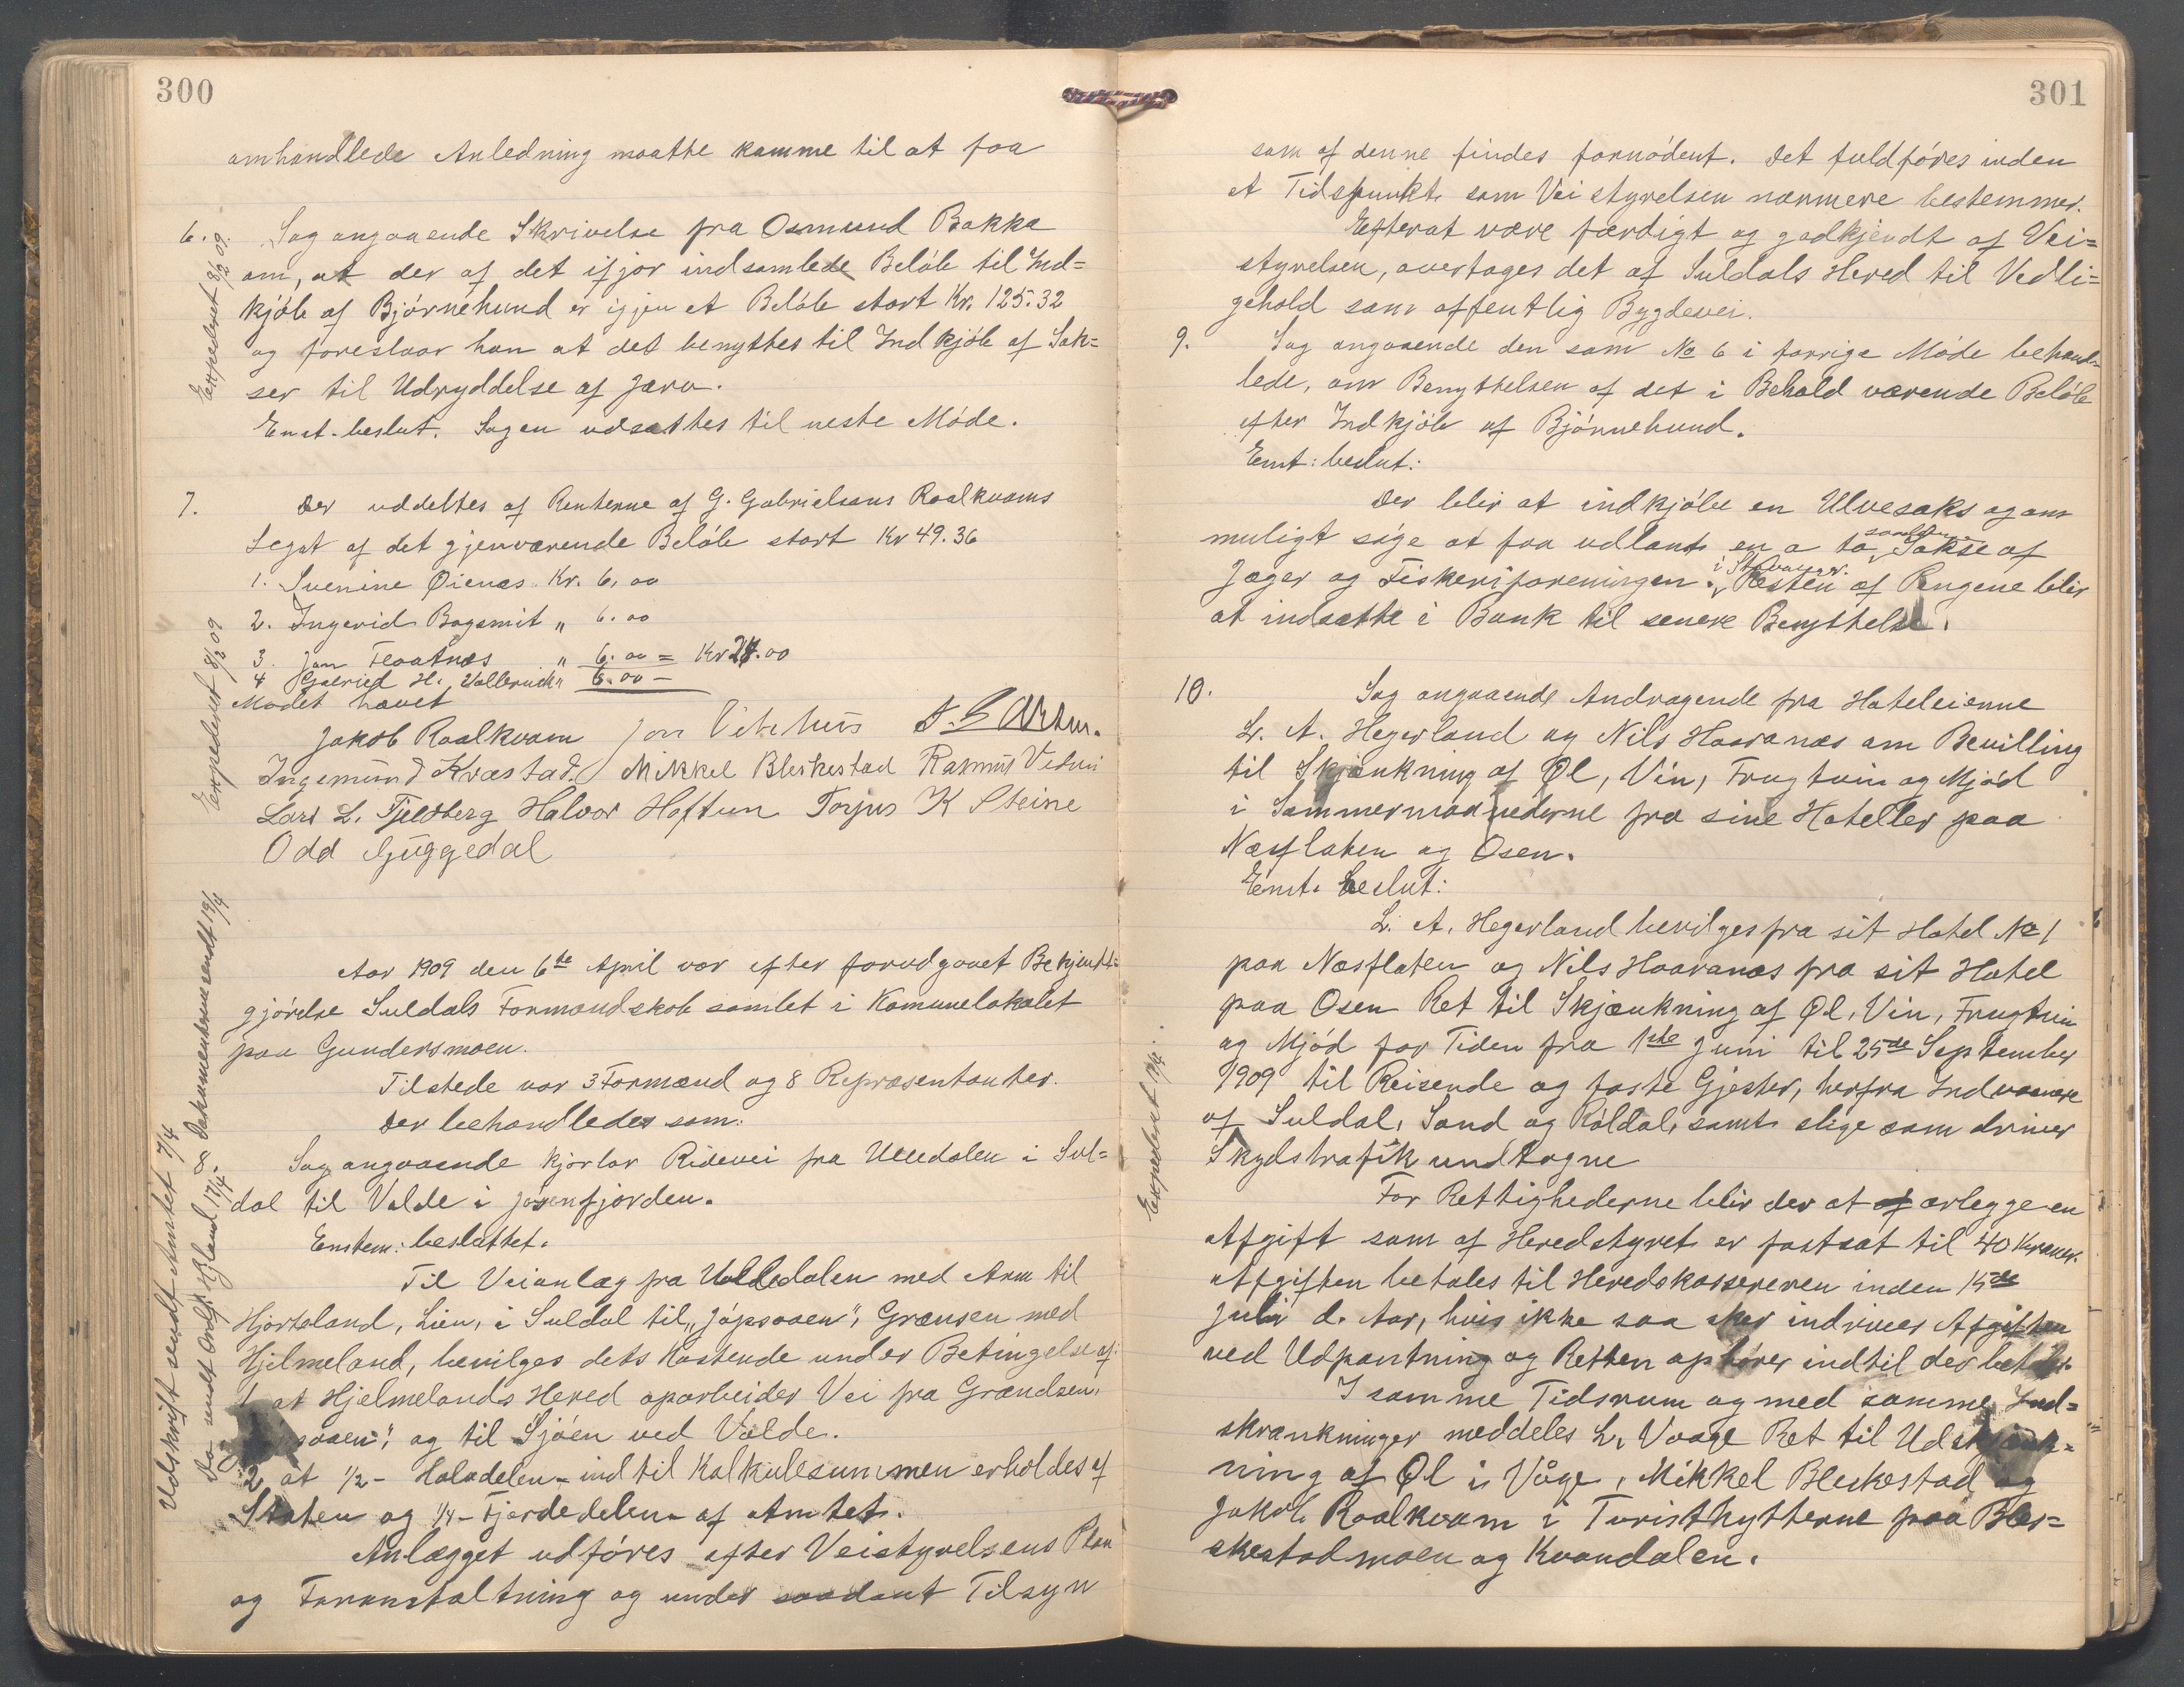 300
omhandlede Anledning maatte komme til at faa
6. Sag angaaende Skrivelse fra Osmund Bakka
om, at der af det ifjor indsamlede Beløb til Ind=
kjøb af Bjørnehund er igjen et Beløb stort Kr. 125.32
og foreslaar han at det benyttes til Indkjøb af Sak=
ser til Udryddelse af Jærv.
Enst. beslut. Sagen udsættes til neste Møde.
Expederet 8/2 09.
7. Der uddeltes af Renterne af G. Gabrielsens Roalkvams
Legat af det gjenværende Beløb stort Kr 49.36
1. Svenine Øienæs Kr. 6,00
2. Ingerid Bagsmit " 6.00
3. Jon Floatnæs " 6.00 = Kr 24.00
4 H. " 6.00 –
Expederet 8/2 09
Mødet hævet
Jakob Roalkvam Jon
Ingemund Kvæstad. Mikkel Bleskestad Rasmus
Lars L. Fjeldberg Halvor Hoftun Torjus K Steine
Odd Guggedal
Aar 1909 den 6te April var efter forudgaaet Bekjendt=
gjørelse Suldals Formandskab samlet i Komunelokalet
paa Gundersmoen.
Tilstede var 3 Formænd og 8 Repræsentanter.
Der behandledes som:
8 Sag angaaende kjørbar Ridevei fra Ulledalen i Sul=
dal til Valde i Jøsenfjorden.
Enstem: besluttet.
Til Veianlæg fra Ulledalen med Arm til
Hjorteland, Lien, i Suldal til „Jøpsaaen", Grænsen med
Hjelmeland, bevilges dets Kostende under Betingelse af:
1 at Hjelmelands Hered oparbeider Vei fra Grændsen,
og til Sjøen ved Valde.
2 at 1/2 – Halvdelen – indtil Kalkulesummen erholdes af
Staten og 1/4 – Fjerdedelen – af Amtet.
Anlægget udføres efter Veistyrelsens Plan
og Foranstaltning og under saadant Tilsyn
Udskrift sendt Amtet 7/4
Do sendt Ordf. Hjland 17/4. Dokumenterne sendt 19/4
301
som af denne findes fornødent. Det fuldføres inden
et Tidspunkt som Veistyrelsen nærmere bestemmer.
Efterat være færdigt og godkjendt af Vei=
styrelsen, overtages det af Suldals Hered til Vedli=
gehold som offentlig Bygdevei.
9. Sag angaaende den som No 6 i forrige Møde behand-
lede, om Benyttelsen af det i Behold værende Beløb
efter Indkjøb af Bjørnehund.
Emst: beslut:
Der blir at indkjøbe en Ulvesaks og om
muligt søge at faa udlaant en a to Sakse af
Jæger og Fiskeriforeningen i Stavanger. Resten af Pengene blir
at indsætte i Bank til senere Benyttelse.
10. Sag angaaende Andragende fra Hoteleierne
L. A. Hegerland og Nils Haavanæs om Bevilling
til Skjænkning af Øl, Vin, Frugtvin og Mjød
i Sommermaanederne fra sine Hoteller paa
Næsflaten og Osen.
Emst. beslut:
L. A. Hegerland bevilges fra sit Hotel No 1
paa Næsflaten og Nils Haavanæs fra sit Hotel
paa Osen Ret til Skjænkning af Øl, Vin, Frugtvin
og Mjød for Tiden fra 1ste Juni til 25de September
1909 til Reisende og faste Gjester, herfra Indvaanere
af Suldal, Sand og Røldal, samt slige som driver
Skydstrafik undtagne
For Rettighederne blir der at erlegge en
Afgift som af Heredstyret er fastsat til 40 Kroner.
Afgiften betales til Heredskassereren inden 15de
Juli d. Aar, hvis ikke saa sker indrives Afgiften
ved Udpantning og Retten ophører indtil der betales
I samme Tidsrum og med samme Ind=
skrænkninger meddeles L. Vaage Ret til Udskjænk=
ning af Øl i Våge, Mikkel Bleskestad og
Jakob Roalkvam i Turisthytterne paa Bles=
kestadmoen og Kvandalen.
Expederet 17/4.